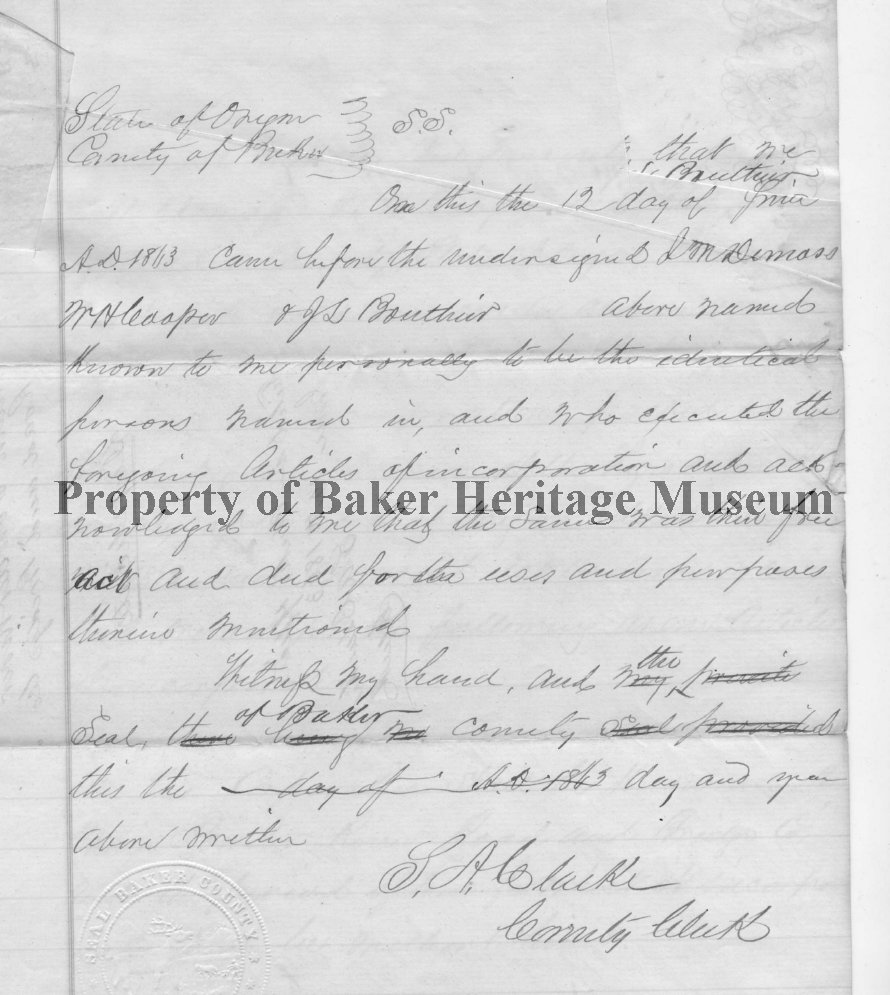 State of Oregon } S.S.
County of Baker
that we
Bouthier
On this the 12 day of June
A.D. 1863 Came before the undersigned J M Demoss
W H Cooper & J L Bouthier above named
Known to me personally to be the identical
persons named in, and who executed the
foregoing Articles of incorporation and ack
Property of Baker Heritage Museum
nowledged to me that the Same was their free
act and deed for the uses and purposes
therein mentioned
Witness my hand, and my the private
Seal, there being no of Baker County Seal provided
this the day of A.D. 1863 day and year
above written
S. A. Clarke
County Clerk
SEAL BAKER COUNTY